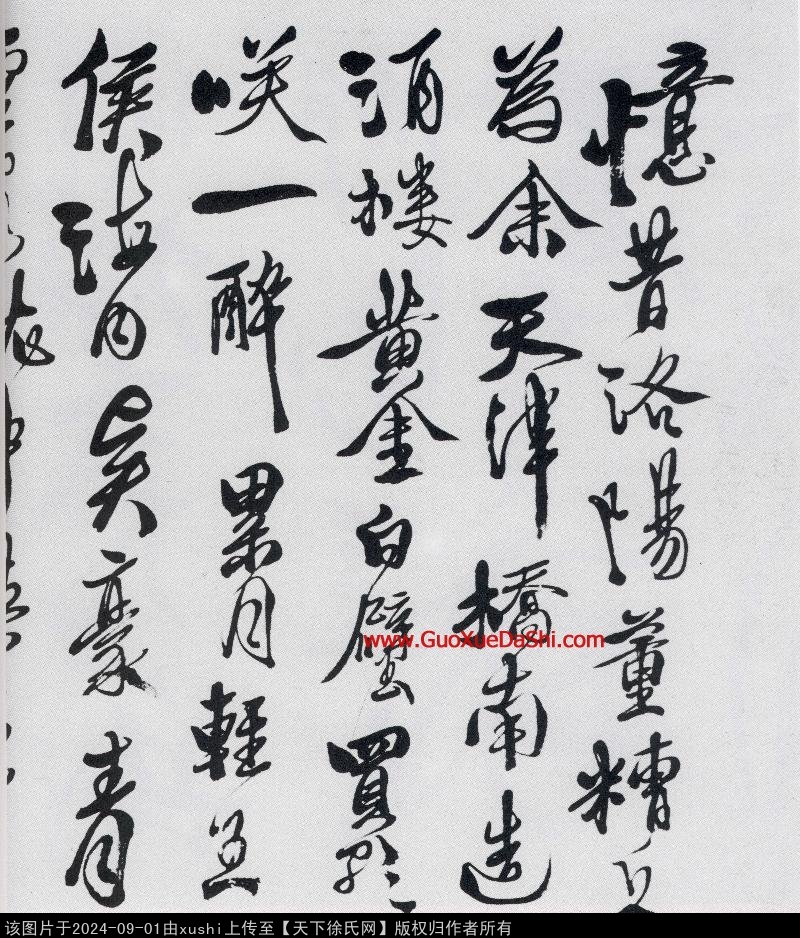 憶昔洛陽董糟丘
為余天津橋南造
酒楼黃金白璧買歌
咲一醉累月輕王
侯海内賢豪青
www.GuoXueDaShi.com
该图片于2024-09-01由xushi上传至【天下徐氏网】版权归作者所有